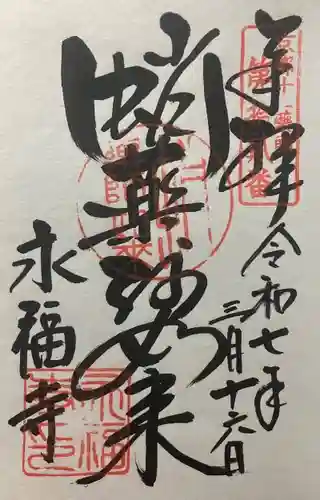 奉拝
令和七年
三月十六日
蛸薬師如来
永福寺